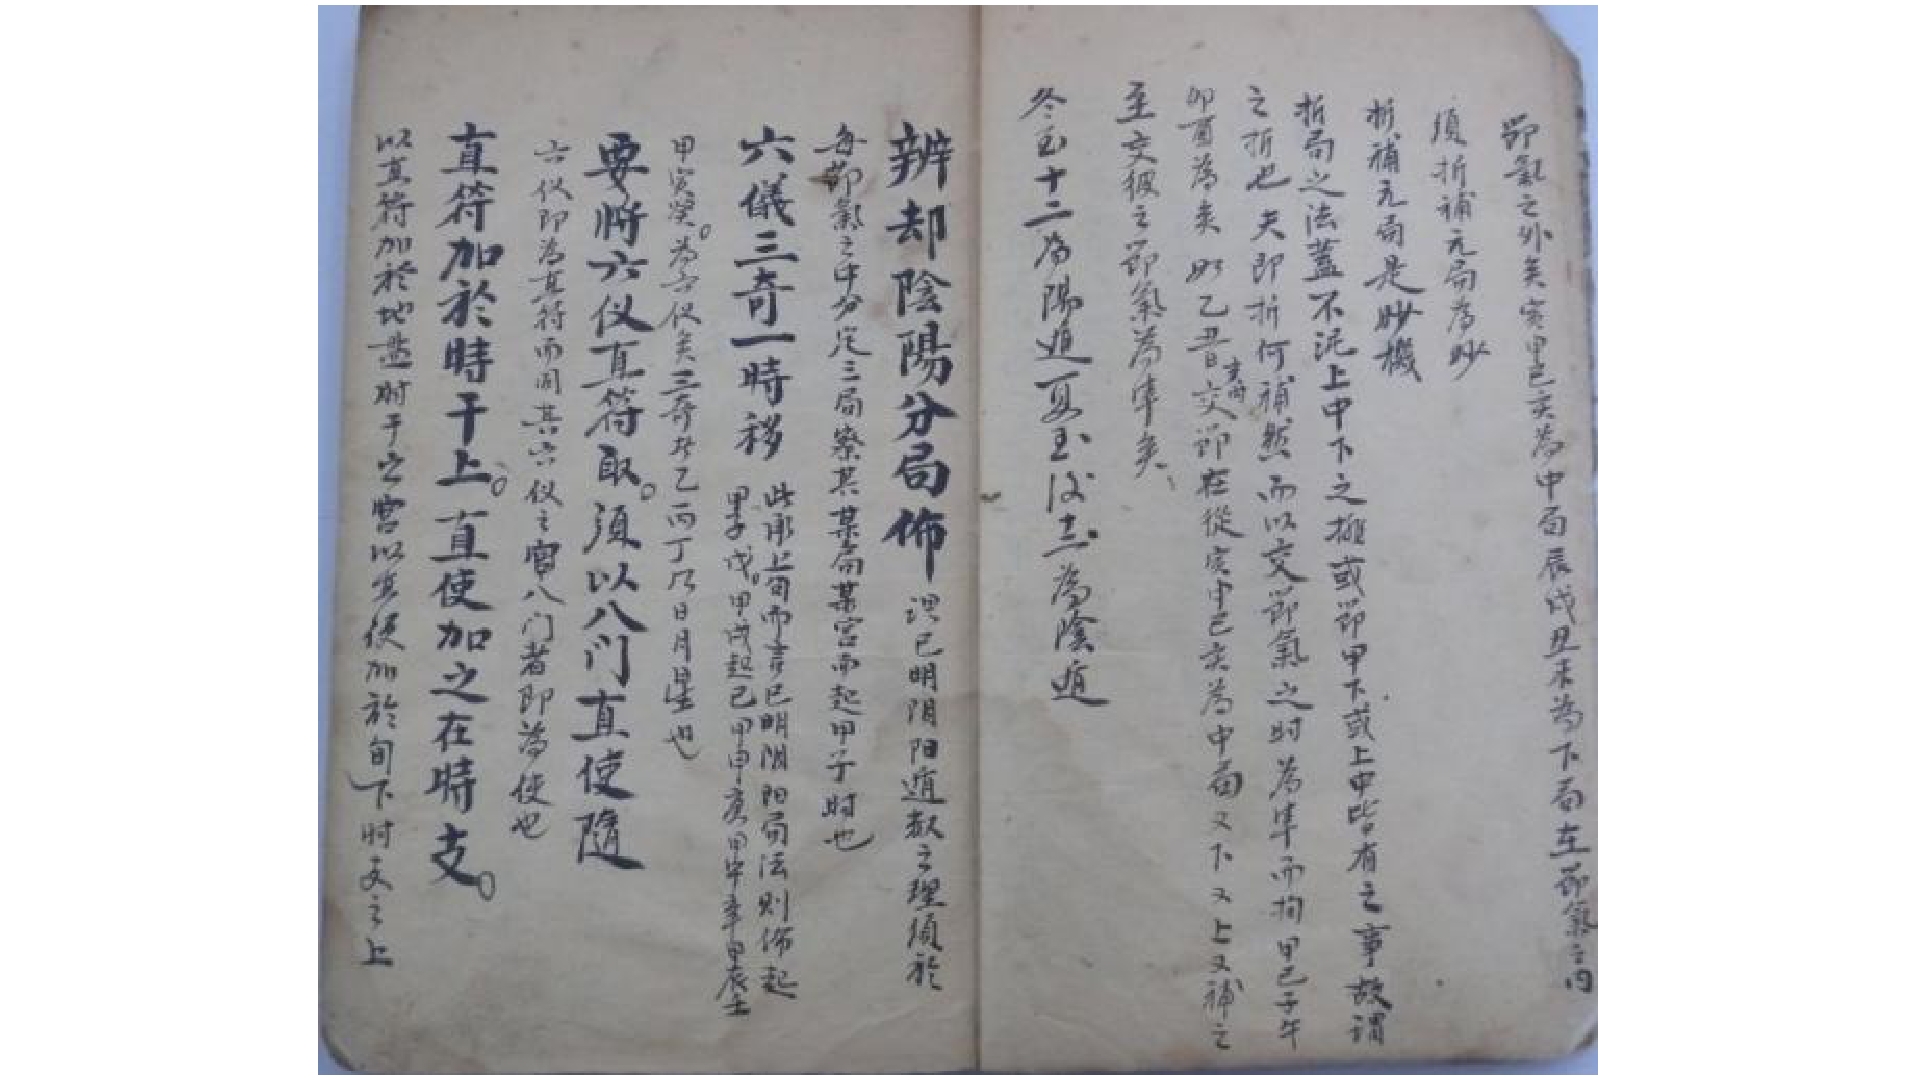 節氣之外矣寅申巳亥為中局辰戌丑未為下局在節氣之內
須折補元局為妙
折補元局是妙機
折局之法蓋不泥上中下之拁或節甲下或上中皆有之事故謂
之折也夫即折何補然而以交節氣之时為準而拘甲己子午
卯酉為矣如乙丑日交節在從寅申巳亥為中局又下又上又補之
至交彼之節氣為準矣
冬至十二為陽遁夏至后十二為陰遁
辨却陰陽分局佈 既已明阴阳遁猷之理須於
每節氣之中分定三局察其某局某宮而起甲子时也
六儀三奇一時移 此承上旬而言已明阴阳局法則佈起
甲子戊甲戌起己甲申庚甲午辛甲辰壬
甲寅癸為六仪矣三奇者乙丙丁乃日月星也
要將六仪直符取須以八门直使隨
六仪即為直符而同其六仪之宮八门者即為使也
直符加於時干上直使加之在時支
以直符加於地盘时干之宮以直使加於旬下时支之上